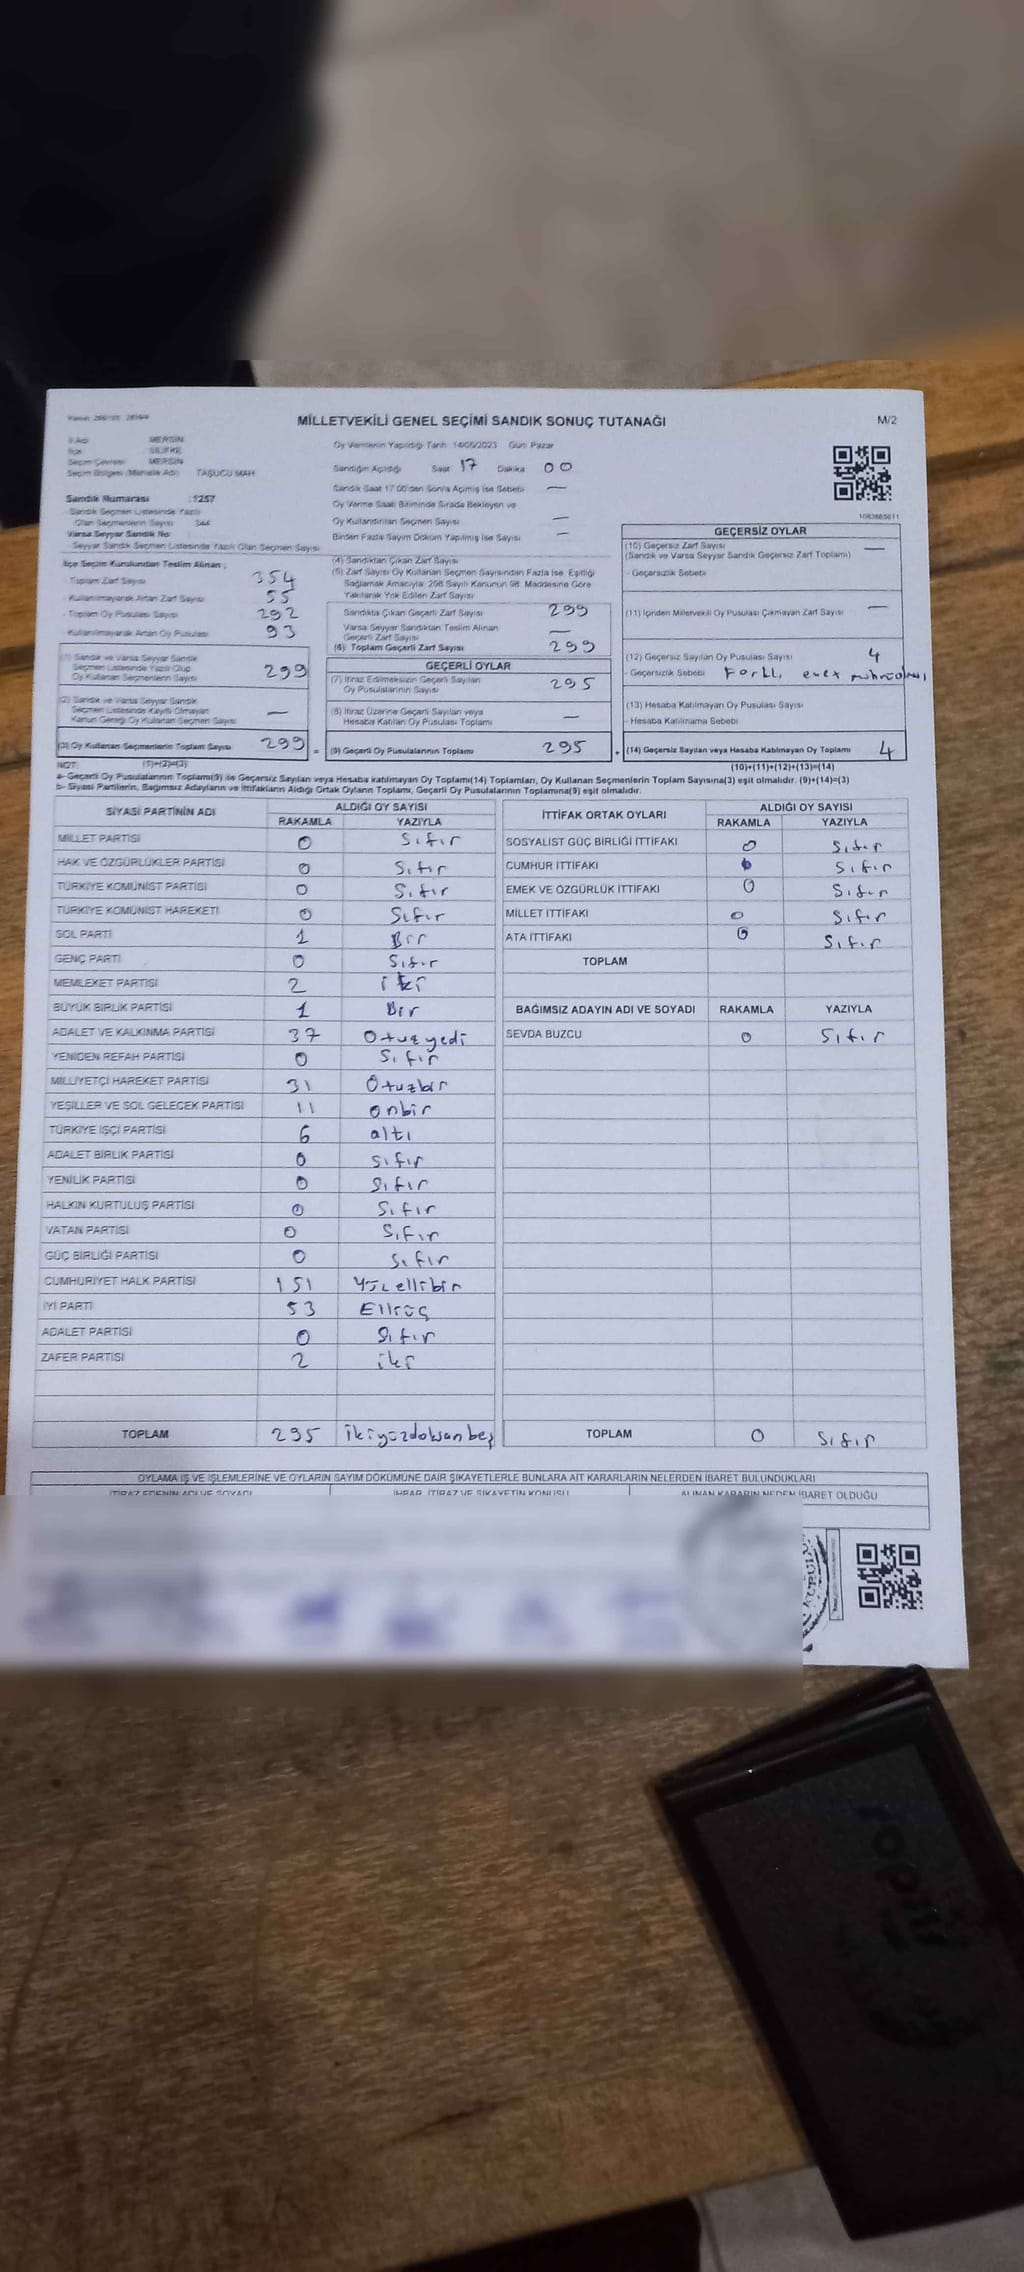 MİLLETVEKİLİ GENEL SEÇİMİ SANDIK SONUÇ TUTANAĞI
M/2
İl Adı MERSİN
İlçe SİLİFKE
Seçim Çevresi MERSİN
Seçim Bölgesi (Mahalle Adı) TAŞUCU MAH
Sandık Numarası :1257
Sandık Seçmen Listesinde Yazılı
Olan Seçmenlerin Sayısı 344
Varsa Seyyar Sandık No
Seyyar Sandık Seçmen Listesinde Yazılı Olan Seçmen Sayısı
Oy Vermenin Yapıldığı Tarih 14/05/2023 Gün: Pazar
Sandığın Açıldığı Saat 17 Dakika 00
Sandık Saat 17.00'den Sonra Açılmış İse Sebebi —
Oy Verme Saati Bitiminde Sırada Bekleyen ve
Oy Kullandırılan Seçmen Sayısı —
Birden Fazla Sayım Döküm Yapılmış İse Sayısı —
1083865611
İlçe Seçim Kurulundan Teslim Alınan :
- Toplam Zarf Sayısı 354
- Kullanılmayarak Artan Zarf Sayısı 55
- Toplam Oy Pusulası Sayısı 292
- Kullanılmayarak Artan Oy Pusulası 93
(1) Sandık ve Varsa Seyyar Sandık
Seçmen Listesinde Yazılı Olup
Oy Kullanan Seçmenlerin Sayısı 299
(2) Sandık ve Varsa Seyyar Sandık
Seçmen Listesinde Kayıtlı Olmayan
Kanun Gereği Oy Kullanan Seçmen Sayısı —
(3) Oy Kullanan Seçmenlerin Toplam Sayısı 299 =
(4) Sandıktan Çıkan Zarf Sayısı
(5) Zarf Sayısı Oy Kullanan Seçmen Sayısından Fazla İse, Eşitliği
Sağlamak Amacıyla; 298 Sayılı Kanunun 98. Maddesine Göre
Yakılarak Yok Edilen Zarf Sayısı
Sandıkta Çıkan Geçerli Zarf Sayısı 299
Varsa Seyyar Sandıktan Teslim Alınan
Geçerli Zarf Sayısı —
(6) Toplam Geçerli Zarf Sayısı 299
GEÇERLİ OYLAR
(7) İtiraz Edilmeksizin Geçerli Sayılan
Oy Pusulalarının Sayısı 295
(8) İtiraz Üzerine Geçerli Sayılan veya
Hesaba Katılan Oy Pusulası Toplamı —
(9) Geçerli Oy Pusulalarının Toplamı 295 +
GEÇERSİZ OYLAR
(10) Geçersiz Zarf Sayısı —
(Sandık ve Varsa Seyyar Sandık Geçersiz Zarf Toplamı)
- Geçersizlik Sebebi
(11) İçinden Milletvekili Oy Pusulası Çıkmayan Zarf Sayısı —
(12) Geçersiz Sayılan Oy Pusulası Sayısı 4
- Geçersizlik Sebebi Farklı evet
(13) Hesaba Katılmayan Oy Pusulası Sayısı
- Hesaba Katılmama Sebebi
(14) Geçersiz Sayılan veya Hesaba Katılmayan Oy Toplamı 4
NOT: (1)+(2)=(3)
(10)+(11)+(12)+(13)=(14)
a- Geçerli Oy Pusulalarının Toplamı(9) ile Geçersiz Sayılan veya Hesaba katılmayan Oy Toplamı(14) Toplamları, Oy Kullanan Seçmenlerin Toplam Sayısına(3) eşit olmalıdır. (9)+(14)=(3)
b- Siyasi Partilerin, Bağımsız Adayların ve İttifakların Aldığı Ortak Oyların Toplamı, Geçerli Oy Pusulalarının Toplamına(9) eşit olmalıdır.
SİYASİ PARTİNİN ADI ALDIĞI OY SAYISI
RAKAMLA YAZIYLA
MİLLET PARTİSİ 0 Sıfır
HAK VE ÖZGÜRLÜKLER PARTİSİ 0 Sıfır
TÜRKİYE KOMÜNİST PARTİSİ 0 Sıfır
TÜRKİYE KOMÜNİST HAREKETİ 0 Sıfır
SOL PARTİ 1 Bir
GENÇ PARTİ 0 Sıfır
MEMLEKET PARTİSİ 2 iki
BÜYÜK BİRLİK PARTİSİ 1 Bir
ADALET VE KALKINMA PARTİSİ 37 Otuzyedi
YENİDEN REFAH PARTİSİ 0 Sıfır
MİLLİYETÇİ HAREKET PARTİSİ 31 Otuzbir
YEŞİLLER VE SOL GELECEK PARTİSİ 11 onbir
TÜRKİYE İŞÇİ PARTİSİ 6 altı
ADALET BİRLİK PARTİSİ 0 Sıfır
YENİLİK PARTİSİ 0 Sıfır
HALKIN KURTULUŞ PARTİSİ 0 Sıfır
VATAN PARTİSİ 0 Sıfır
GÜÇ BİRLİĞİ PARTİSİ 0 Sıfır
CUMHURİYET HALK PARTİSİ 151 Yüzellibir
İYİ PARTİ 53 Elliüç
ADALET PARTİSİ 0 Sıfır
ZAFER PARTİSİ 2 iki
TOPLAM 295 ikiyüzdoksanbeş
İTTİFAK ORTAK OYLARI ALDIĞI OY SAYISI
RAKAMLA YAZIYLA
SOSYALİST GÜÇ BİRLİĞİ İTTİFAKI 0 Sıfır
CUMHUR İTTİFAKI 0 Sıfır
EMEK VE ÖZGÜRLÜK İTTİFAKI 0 Sıfır
MİLLET İTTİFAKI 0 Sıfır
ATA İTTİFAKI 0 Sıfır
TOPLAM
BAĞIMSIZ ADAYIN ADI VE SOYADI RAKAMLA YAZIYLA
SEVDA BUZCU 0 Sıfır
TOPLAM 0 Sıfır
OYLAMA İŞ VE İŞLEMLERİNE VE OYLARIN SAYIM DÖKÜMÜNE DAİR ŞİKAYETLERLE BUNLARA AİT KARARLARIN NELERDEN İBARET BULUNDUKLARI
İTİRAZ EDENİN ADI VE SOYADI İHBAR, İTİRAZ VE ŞİKAYETİN KONUSU ALINAN KARARIN NEDEN İBARET OLDUĞU